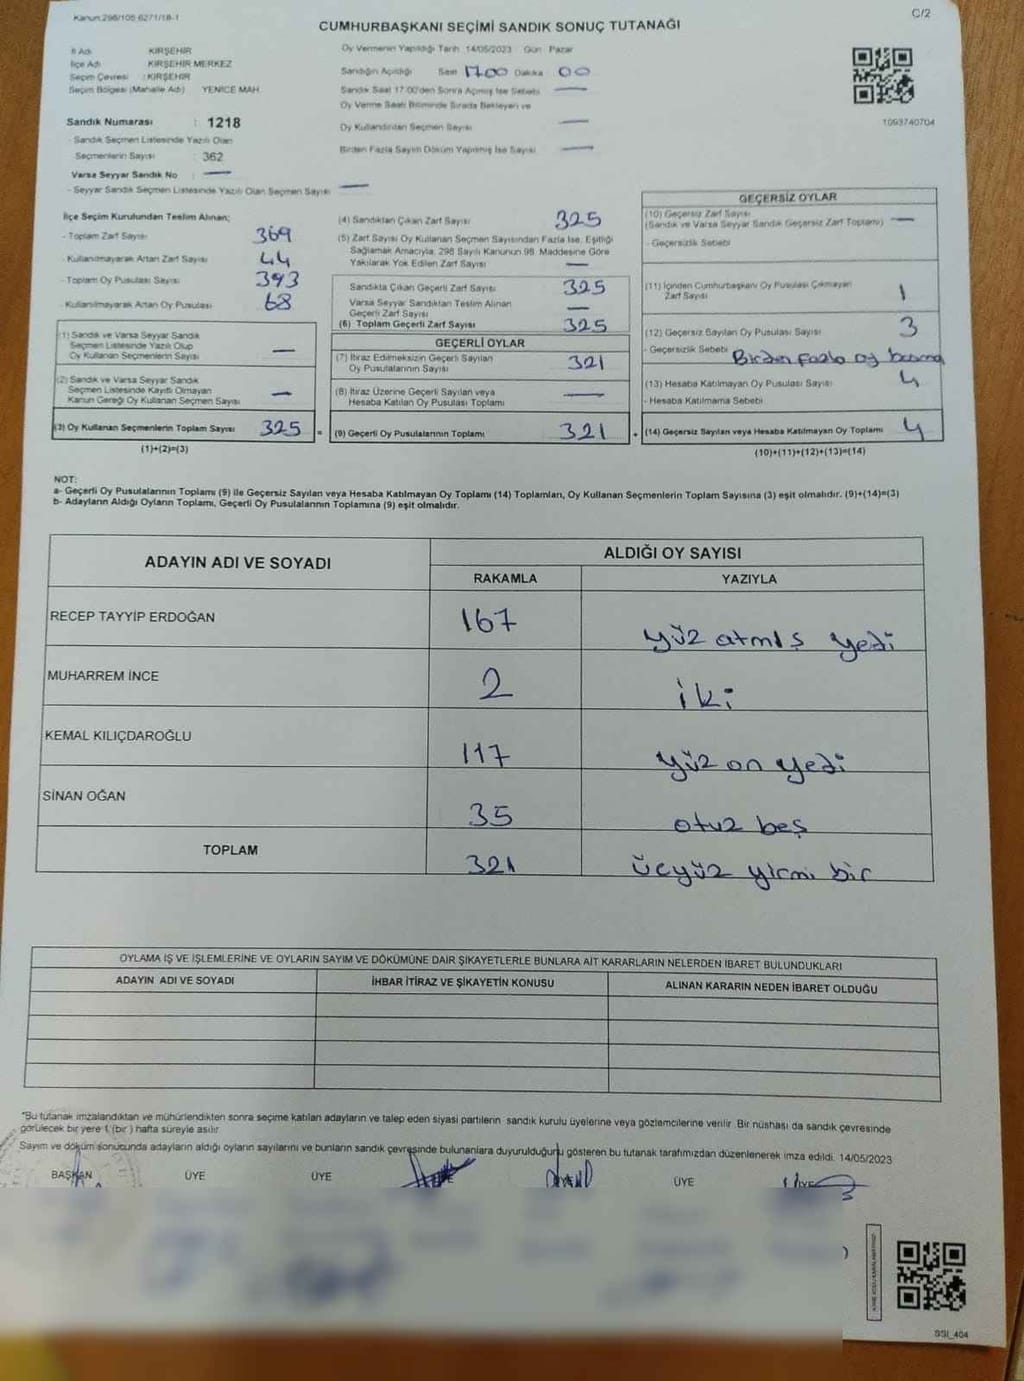 Kanun:298/105-6271/18-1
C/2
CUMHURBAŞKANI SEÇİMİ SANDIK SONUÇ TUTANAĞI
İl Adı KIRŞEHİR
İlçe Adı KIRŞEHİR MERKEZ
Seçim Çevresi : KIRŞEHİR
Seçim Bölgesi (Mahalle Adı) YENİCE MAH.
Sandık Numarası : 1218
- Sandık Seçmen Listesinde Yazılı Olan
Seçmenlerin Sayısı : 362
Varsa Seyyar Sandık No —
- Seyyar Sandık Seçmen Listesinde Yazılı Olan Seçmen Sayısı —
Oy Vermenin Yapıldığı Tarih 14/05/2023 Gün Pazar
Sandığın Açıldığı Saat 17.00 Dakika 00
Sandık Saat 17:00'den Sonra Açılmış İse Sebebi —
Oy Verme Saati Bitiminde Sırada Bekleyen ve
Oy Kullandırılan Seçmen Sayısı —
Birden Fazla Sayım Döküm Yapılmış İse Sayısı —
1093740704
İlçe Seçim Kurulundan Teslim Alınan;
- Toplam Zarf Sayısı 369
- Kullanılmayarak Artan Zarf Sayısı 44
- Toplam Oy Pusulası Sayısı 393
- Kullanılmayarak Artan Oy Pusulası 68
(1) Sandık ve Varsa Seyyar Sandık
Seçmen Listesinde Yazılı Olup
Oy Kullanan Seçmenlerin Sayısı —
(2) Sandık ve Varsa Seyyar Sandık
Seçmen Listesinde Kayıtlı Olmayan
Kanun Gereği Oy Kullanan Seçmen Sayısı —
(3) Oy Kullanan Seçmenlerin Toplam Sayısı 325 =
(1)+(2)=(3)
(4) Sandıktan Çıkan Zarf Sayısı 325
(5) Zarf Sayısı Oy Kullanan Seçmen Sayısından Fazla İse, Eşitliği
Sağlamak Amacıyla, 298 Sayılı Kanunun 98. Maddesine Göre
Yakılarak Yok Edilen Zarf Sayısı —
Sandıkta Çıkan Geçerli Zarf Sayısı 325
Varsa Seyyar Sandıktan Teslim Alınan
Geçerli Zarf Sayısı —
(6) Toplam Geçerli Zarf Sayısı 325
GEÇERLİ OYLAR
(7) İtiraz Edilmeksizin Geçerli Sayılan
Oy Pusulalarının Sayısı 321
(8) İtiraz Üzerine Geçerli Sayılan veya
Hesaba Katılan Oy Pusulası Toplamı —
(9) Geçerli Oy Pusulalarının Toplamı 321 +
GEÇERSİZ OYLAR
(10) Geçersiz Zarf Sayısı
(Sandık ve Varsa Seyyar Sandık Geçersiz Zarf Toplamı) —
- Geçersizlik Sebebi
(11) İçinden Cumhurbaşkanı Oy Pusulası Çıkmayan
Zarf Sayısı 1
(12) Geçersiz Sayılan Oy Pusulası Sayısı 3
- Geçersizlik Sebebi Birden fazla oy basma
(13) Hesaba Katılmayan Oy Pusulası Sayısı 4
- Hesaba Katılmama Sebebi
(14) Geçersiz Sayılan veya Hesaba Katılmayan Oy Toplamı 4
(10)+(11)+(12)+(13)=(14)
NOT:
a- Geçerli Oy Pusulalarının Toplamı (9) ile Geçersiz Sayılan veya Hesaba Katılmayan Oy Toplamı (14) Toplamları, Oy Kullanan Seçmenlerin Toplam Sayısına (3) eşit olmalıdır. (9)+(14)=(3)
b- Adayların Aldığı Oyların Toplamı, Geçerli Oy Pusulalarının Toplamına (9) eşit olmalıdır.
ADAYIN ADI VE SOYADI ALDIĞI OY SAYISI
RAKAMLA YAZIYLA
RECEP TAYYİP ERDOĞAN 167 yüz atmış yedi
MUHARREM İNCE 2 iki
KEMAL KILIÇDAROĞLU 117 yüz on yedi
SİNAN OĞAN 35 otuz beş
TOPLAM 321 üçyüz yirmi bir
OYLAMA İŞ VE İŞLEMLERİNE VE OYLARIN SAYIM VE DÖKÜMÜNE DAİR ŞİKAYETLERLE BUNLARA AİT KARARLARIN NELERDEN İBARET BULUNDUKLARI
ADAYIN ADI VE SOYADI İHBAR İTİRAZ VE ŞİKAYETİN KONUSU ALINAN KARARIN NEDEN İBARET OLDUĞU
"Bu tutanak imzalandıktan ve mühürlendikten sonra seçime katılan adayların ve talep eden siyasi partilerin sandık kurulu üyelerine veya gözlemcilerine verilir. Bir nüshası da sandık çevresinde
görülecek bir yere 1 (bir) hafta süreyle asılır.
Sayım ve döküm sonucunda adayların aldığı oyların sayılarını ve bunların sandık çevresinde bulunanlara duyurulduğunu gösteren bu tutanak tarafımızdan düzenlenerek imza edildi. 14/05/2023
BAŞKAN ÜYE ÜYE ÜYE ÜYE
SSI_404